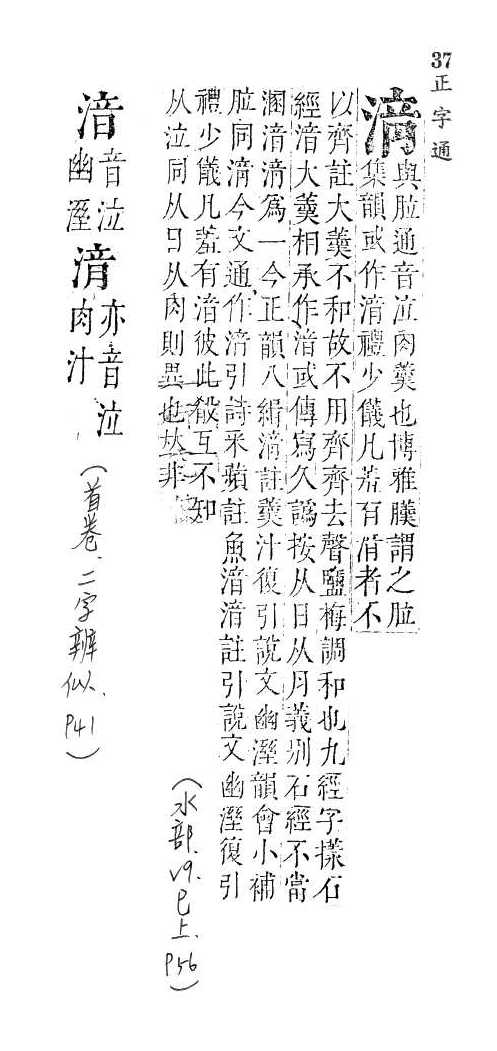 37 正字通
湇與𦚾通音泣肉羹也博雅膱謂之𦚾
集韻或作湇禮少儀凡羞有湇者不
以齊註大羹不和故不用齊齊去聲鹽梅調和也九經字樣石
經湆大羹相承作湆或傳寫久譌按从日从月義別石經不當
溷湆湇爲一今正韻八緝湇註羹汁復引說文幽溼韻會小補
𦚾同湇今文通作湆引詩采蘋註魚湆湆註引說文幽溼復引
禮少儀凡羞有湆彼此殽互不知
从泣同从日从肉則異也𠀤非
(水部.v9.巳上.P56)
湆音泣幽溼
湇亦音泣肉汁
(首卷.二字辨似.P41)